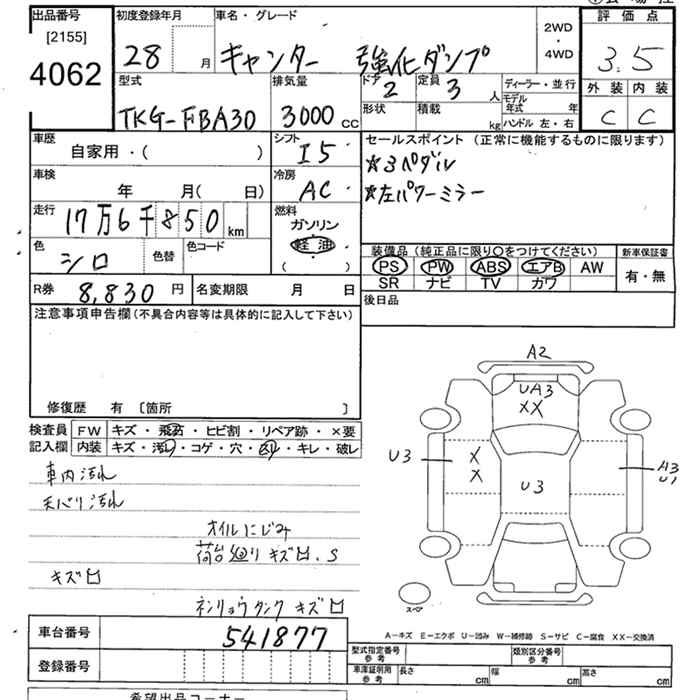 出品番号
[2155]
4062
初度登録年月
28 月
車名・グレード
キャンター 強化ダンプ
2WD
・
4WD
評価点
3.5
外装 内装
C C
型式
TKG-FBA30
排気量
3000 cc
ドア
2
定員
3 人
形状
積載
kg
ディーラー・並行
モデル年式 年
ハンドル 左・右
車歴
自家用・( )
シフト
I5
セールスポイント (正常に機能するものに限ります)
☆3ペダル
☆左パワーミラー
車検
年 月( 日)
冷房
AC
走行
17万6千850 km
燃料
ガソリン
軽油
( )
色
シロ
色替
色コード
装備品 (純正品に限り〇をつけてください)
PS PW ABS エアB AW
SR ナビ TV カワ
新車保証書
有・無
R券
8,830 円
名変期限 月 日
後日品
注意事項申告欄 (不具合内容等は具体的に記入して下さい)
修復歴 有 〔箇所 〕
検査員
記入欄
FW キズ・飛石・ヒビ割・リペア跡・×要
内装 キズ・汚れ・コゲ・穴・凹・キレ・破レ
車内汚れ
天バリ汚れ
オイルにじみ
荷台廻りキズ凹.S
キズ凹
ネンリョウタンクキズ凹
A2
UA3
XX
U3
X
X
U3
A3
U1
スペア
車台番号
541877
登録番号
A-キズ E-エクボ U-凹み W-補修跡 S-サビ C-腐食 XX-交換済
型式指定番号
参考
類別区分番号
参考
車庫証明用
参考
長さ cm
幅 cm
高さ cm
希望出品コーナー